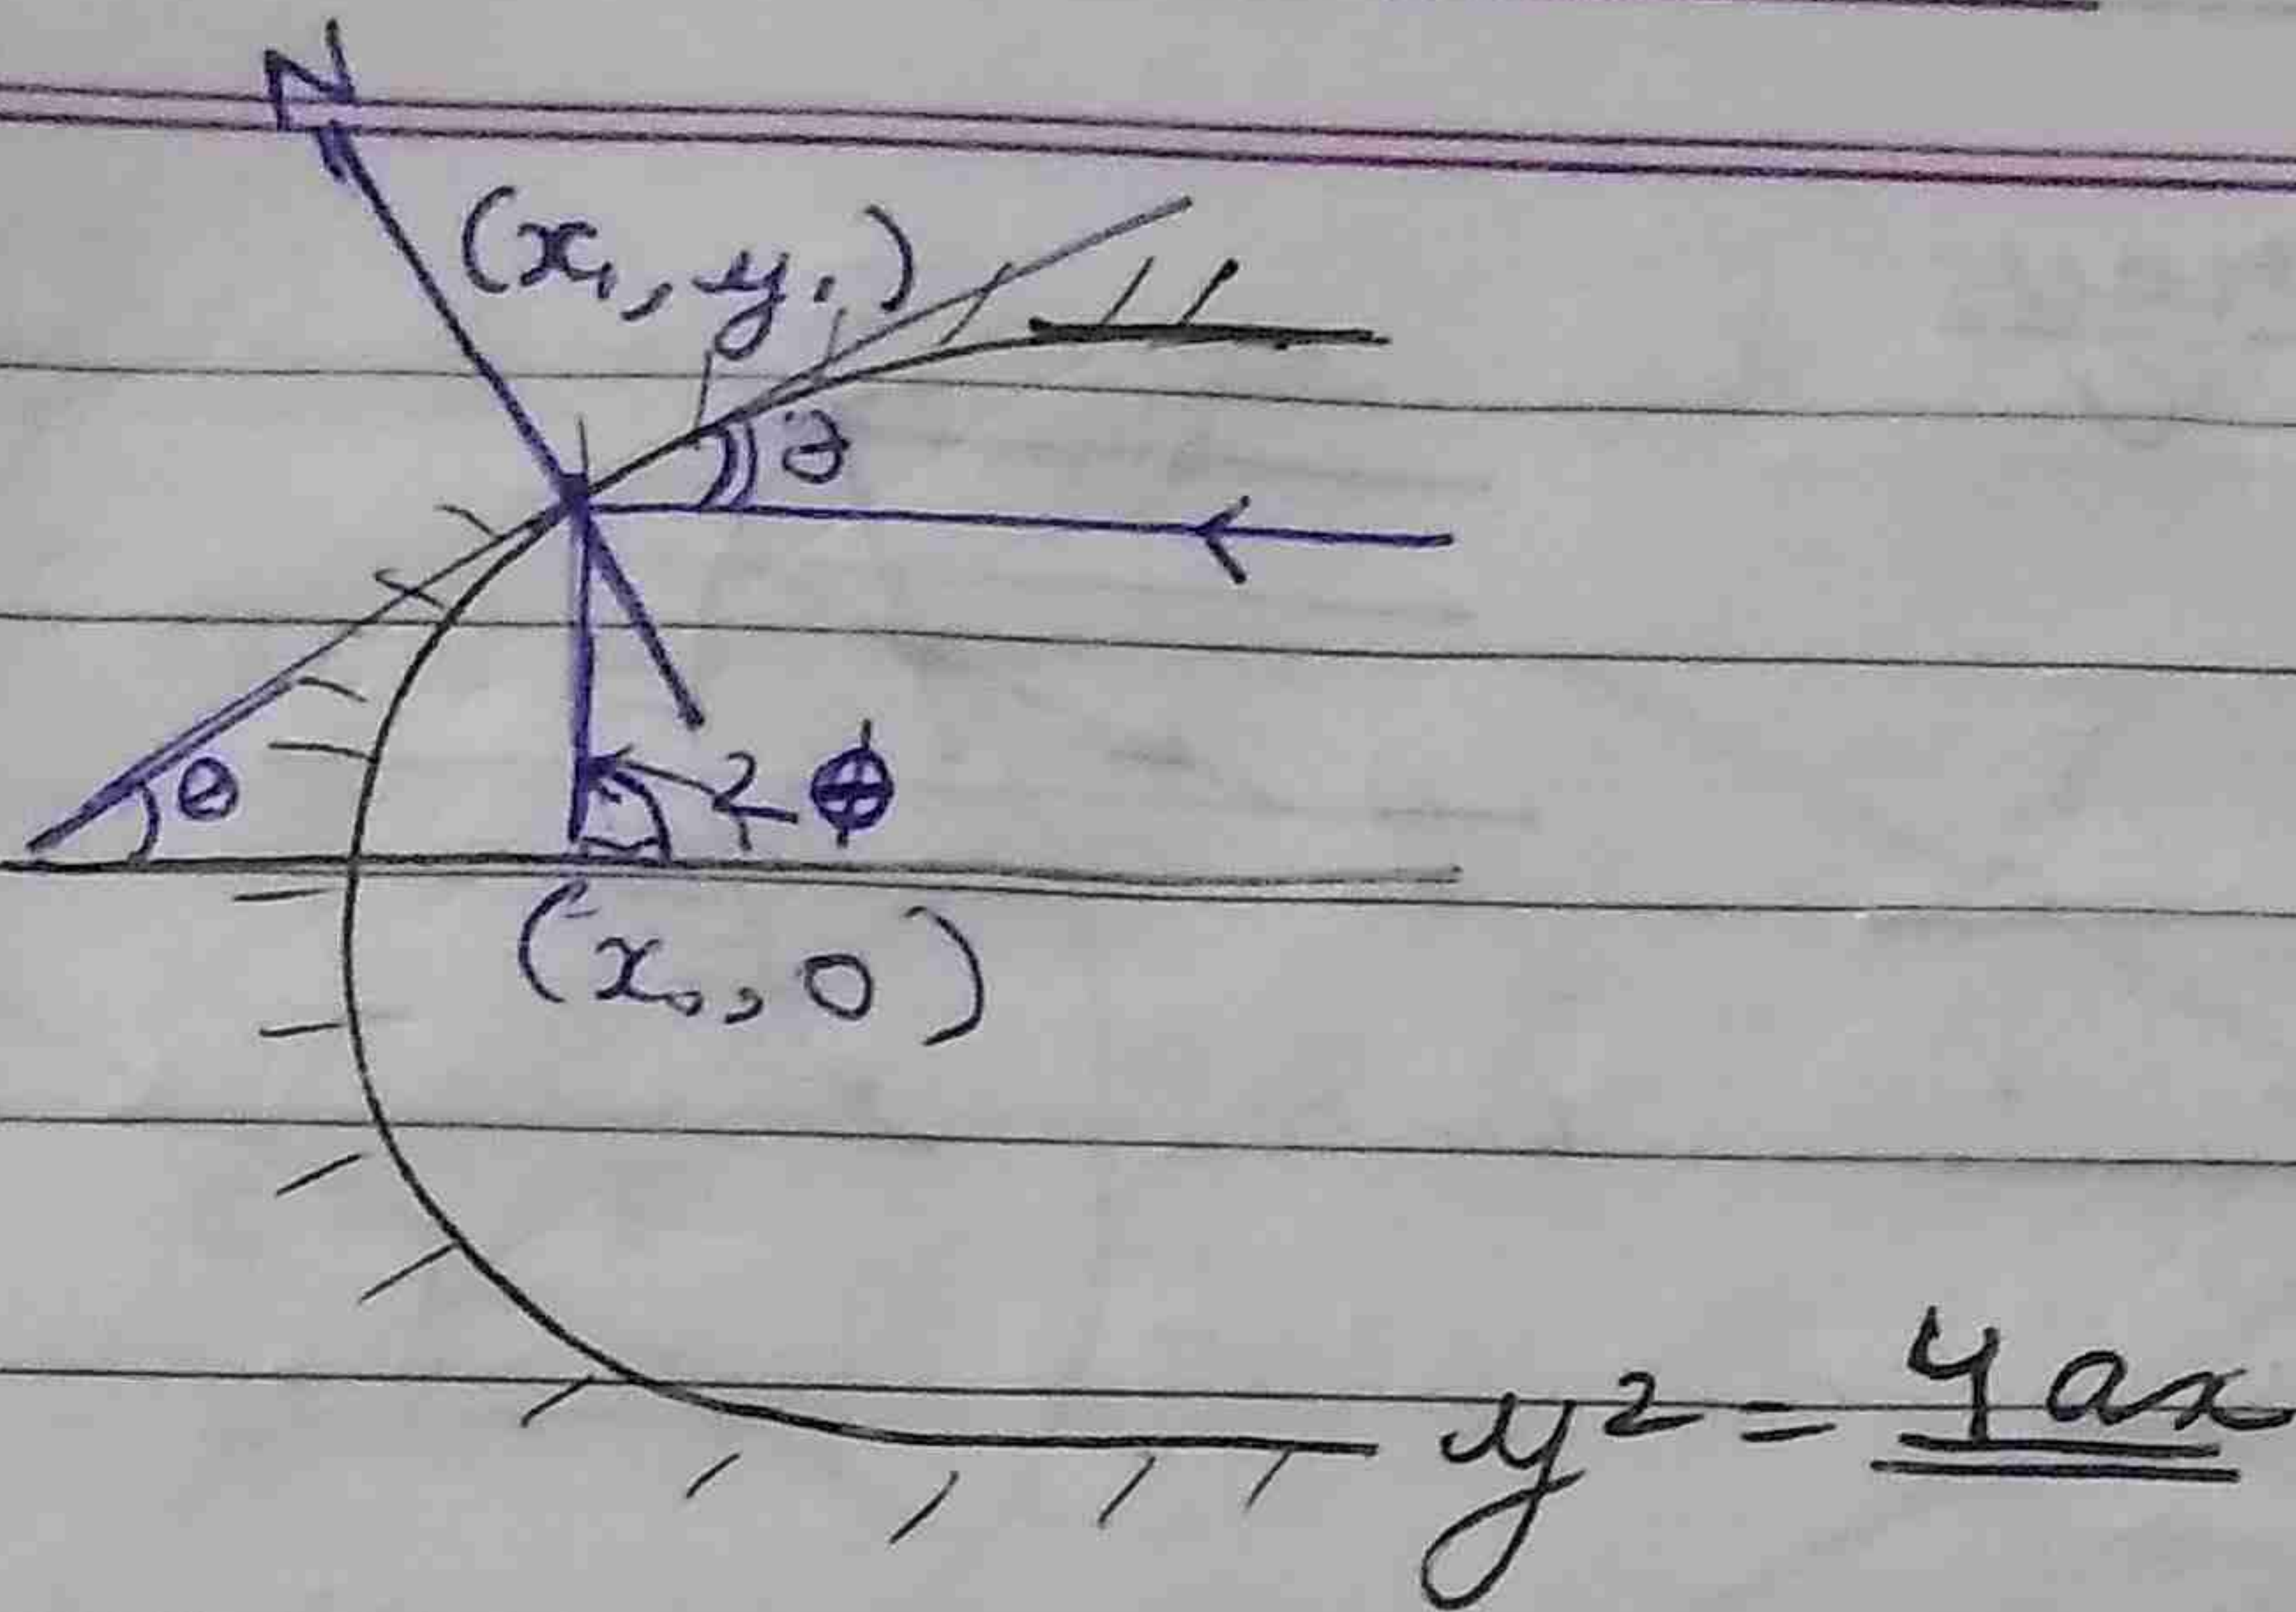 N
(x₁, y₁)
θ
θ
φ
(x₀, 0)
y² = 4ax